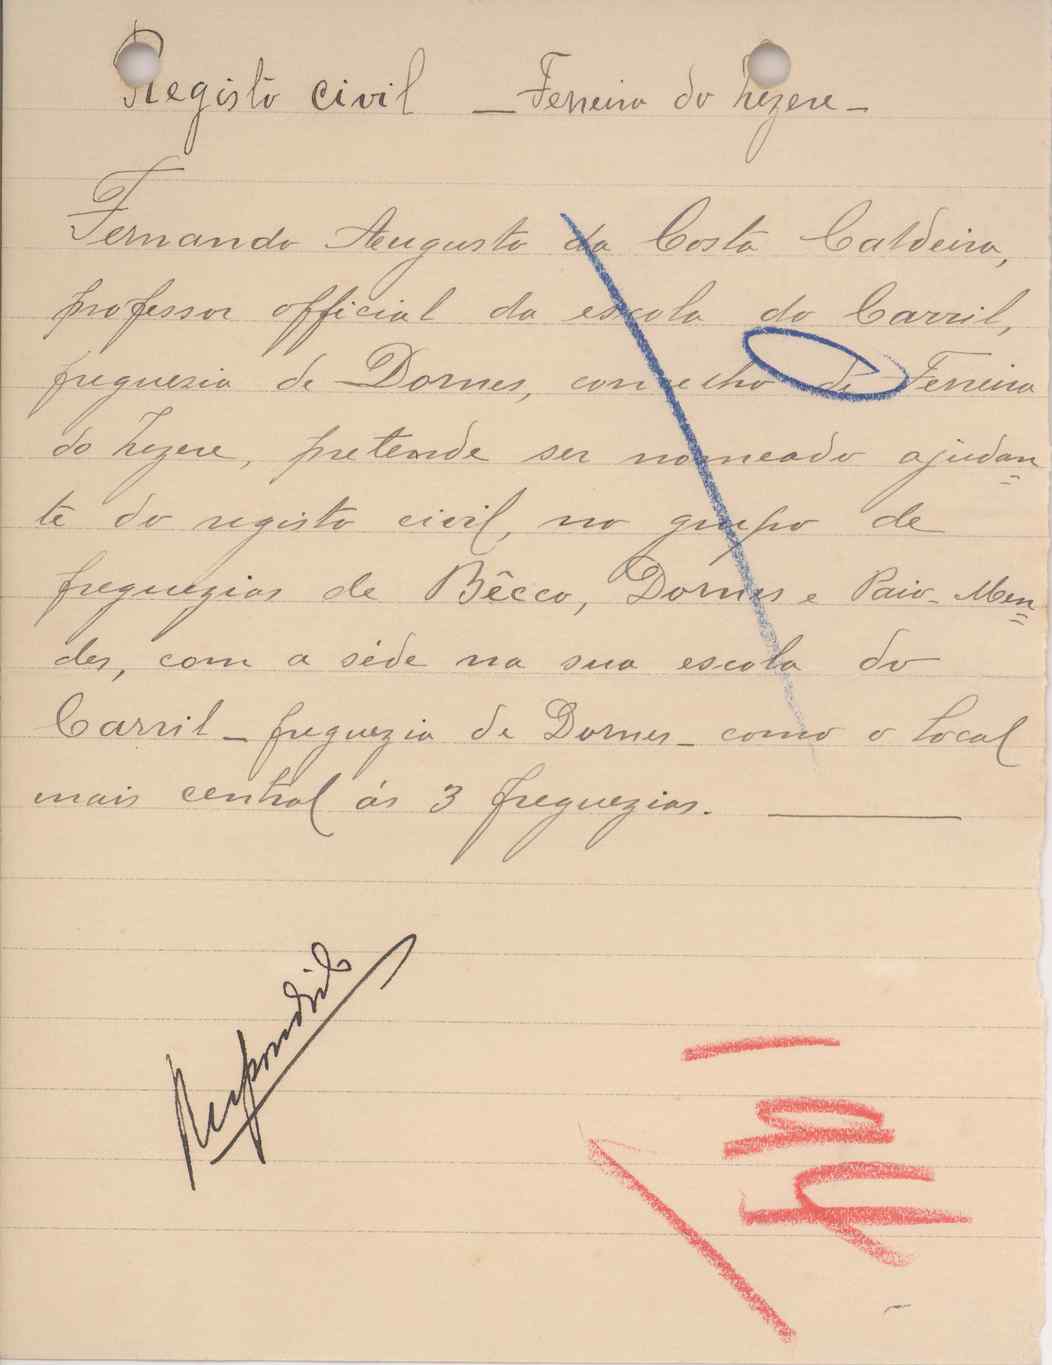 Registo civil — Ferreira do Zezere —
Fernando Augusto da Costa Caldeira,
professor official da escola do Carril,
freguezia de Dornes, concelho de Ferreira
do Zezere, pretende ser nomeado ajudan=
te do registo civil, no grupo de
freguezias de Bêcco, Dornes e Paio-Men=
des, com a séde na sua escola do
Carril — freguezia de Dornes — como o local
mais central ás 3 freguezias. ———
Respondido